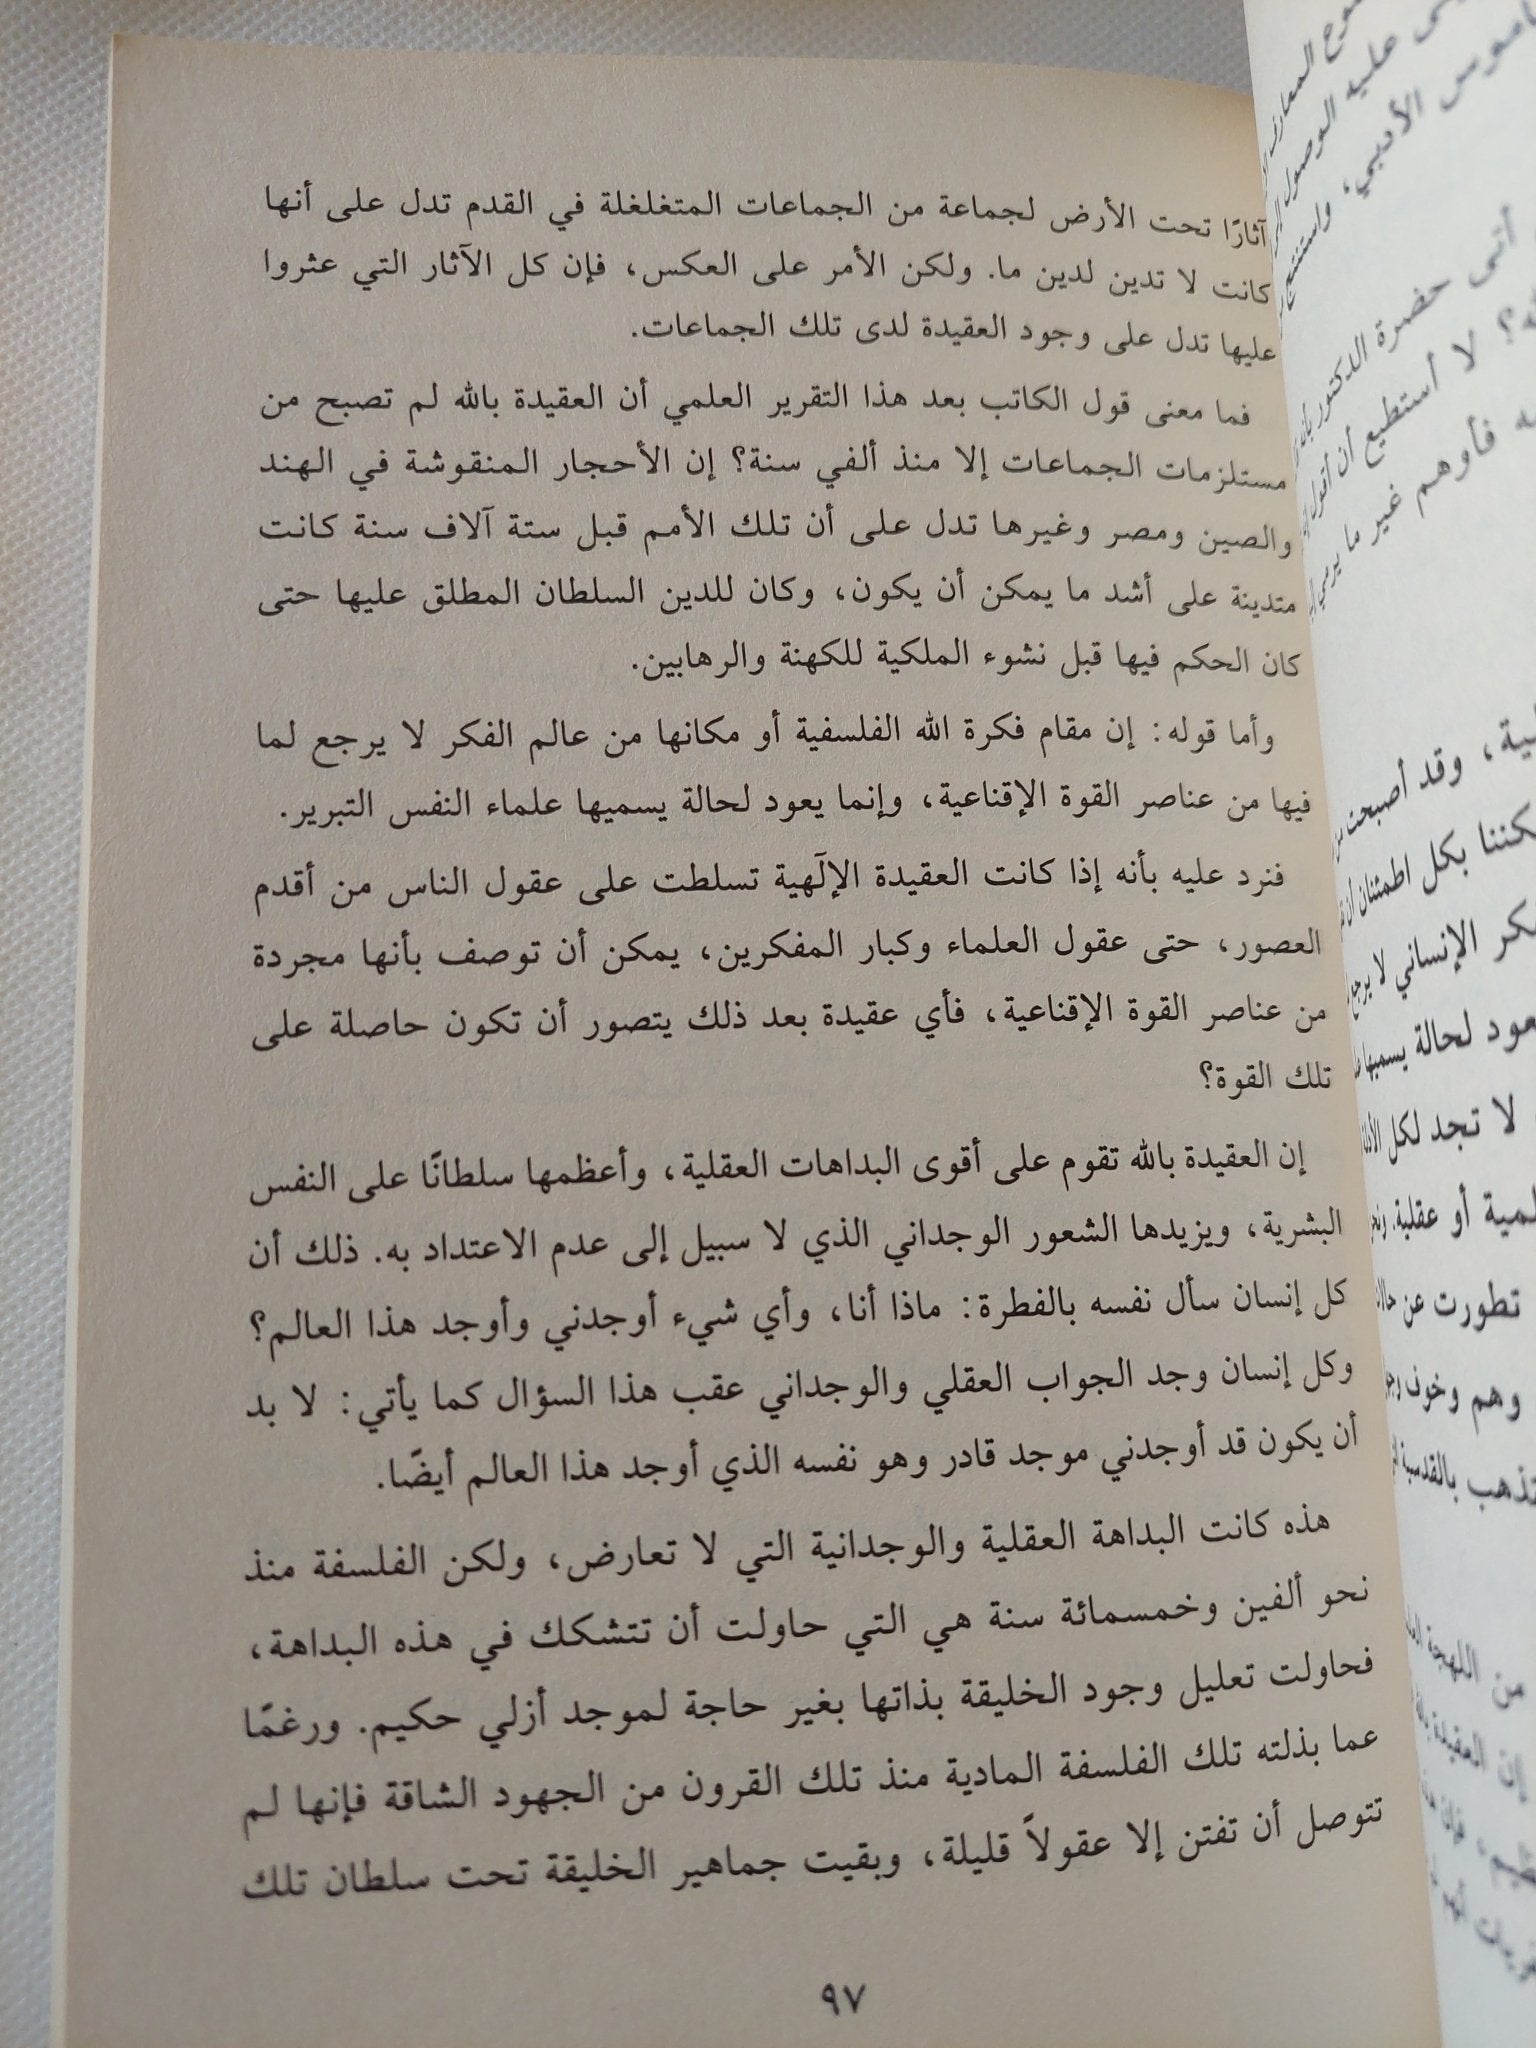 آثارًا تحت الأرض لجماعة من الجماعات المتغلغلة في القدم تدل على أنها
كانت لا تدين لدين ما. ولكن الأمر على العكس، فإن كل الآثار التي عثروا
عليها تدل على وجود العقيدة لدى تلك الجماعات.
فما معنى قول الكاتب بعد هذا التقرير العلمي أن العقيدة بالله لم تصبح من
مستلزمات الجماعات إلا منذ ألفي سنة؟ إن الأحجار المنقوشة في الهند
والصين ومصر وغيرها تدل على أن تلك الأمم قبل ستة آلاف سنة كانت
متدينة على أشد ما يمكن أن يكون، وكان للدين السلطان المطلق عليها حتى
كان الحكم فيها قبل نشوء الملكية للكهنة والرهابين.
وأما قوله: إن مقام فكرة الله الفلسفية أو مكانها من عالم الفكر لا يرجع لما
فيها من عناصر القوة الإقناعية، وإنما يعود لحالة يسميها علماء النفس التبرير.
فنرد عليه بأنه إذا كانت العقيدة الإلٓهية تسلطت على عقول الناس من أقدم
العصور، حتى عقول العلماء وكبار المفكرين، يمكن أن توصف بأنها مجردة
من عناصر القوة الإقناعية، فأي عقيدة بعد ذلك يتصور أن تكون حاصلة على
تلك القوة؟
إن العقيدة بالله تقوم على أقوى البداهات العقلية، وأعظمها سلطانًا على النفس
البشرية، ويزيدها الشعور الوجداني الذي لا سبيل إلى عدم الاعتداد به. ذلك أن
كل إنسان سأل نفسه بالفطرة: ماذا أنا، وأي شيء أوجدني وأوجد هذا العالم؟
وكل إنسان وجد الجواب العقلي والوجداني عقب هذا السؤال كما يأتي: لا بد
أن يكون قد أوجدني موجد قادر وهو نفسه الذي أوجد هذا العالم أيضًا.
هذه كانت البداهة العقلية والوجدانية التي لا تعارض، ولكن الفلسفة منذ
نحو ألفين وخمسمائة سنة هي التي حاولت أن تتشكك في هذه البداهة،
فحاولت تعليل وجود الخليقة بذاتها بغير حاجة لموجد أزلي حكيم. ورغمًا
عما بذلته تلك الفلسفة المادية منذ تلك القرون من الجهود الشاقة فإنها لم
تتوصل أن تفتن إلا عقولاً قليلة، وبقيت جماهير الخليقة تحت سلطان تلك
٩٧
عليه الوصول
الأدبي، واستنتج
أتى حضرة الدكتور
لا أستطيع أن أقول
فأوهم غير ما
وقد أصبحت
بكل اطمئنان أن
الإنساني لا يرجع
لحالة يسميها
لا تجد لكل
أو عقلية
تطورت عن
وهم وخوف
بالقدسية
من اللهجة
إن العقيدة